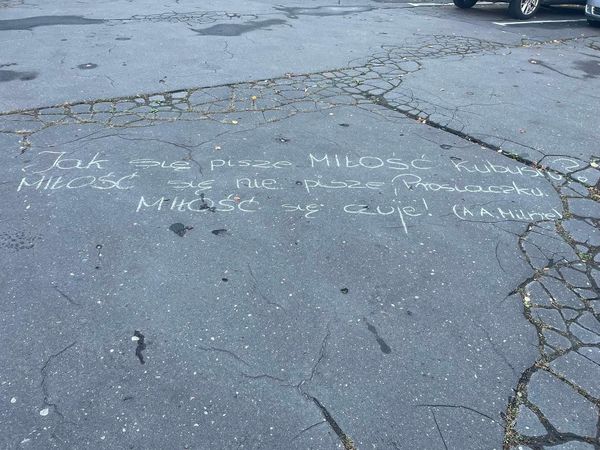 Jak się pisze MIŁOŚĆ Kubusiu?
MIŁOŚĆ się nie pisze Prosiaczku.
MIŁOŚĆ się czuje! (A.A.Milne)